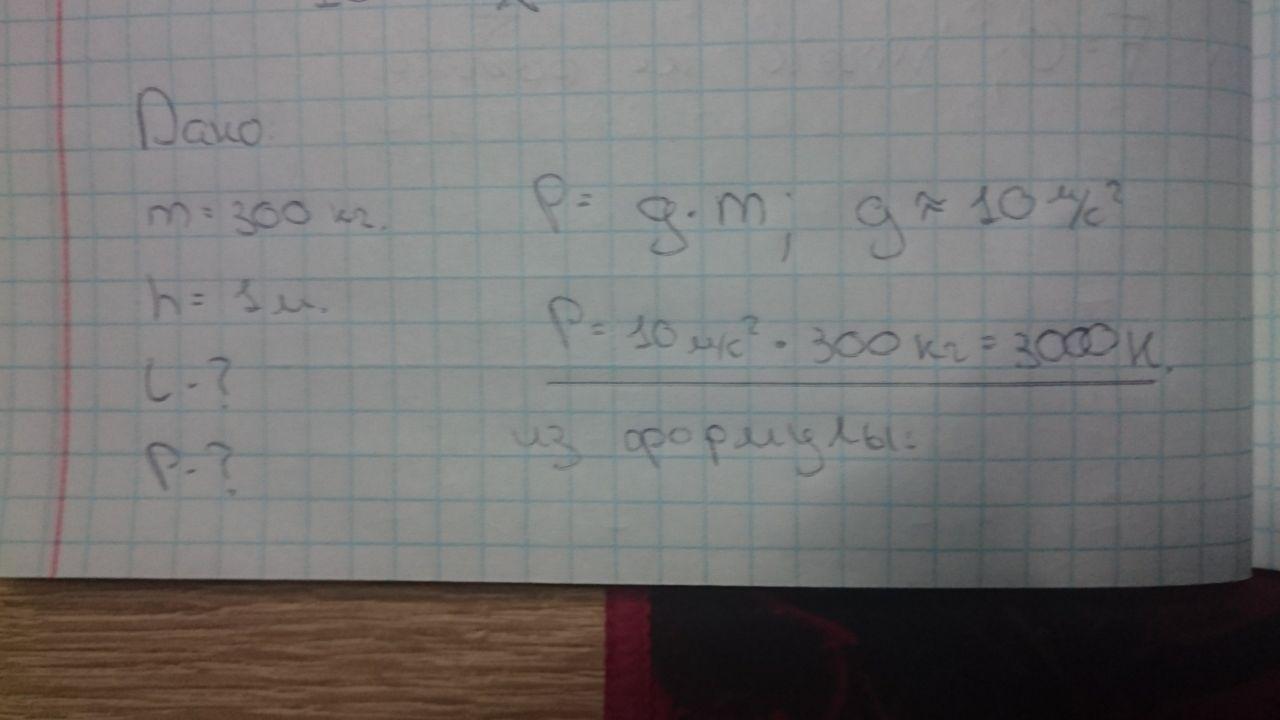 Дано
m = 300 кг.
h = 1 м.
L - ?
P - ?
P = g · m; g ≈ 10 м/с²
P = 10 м/с² · 300 кг = 3000 Н.
из формулы: